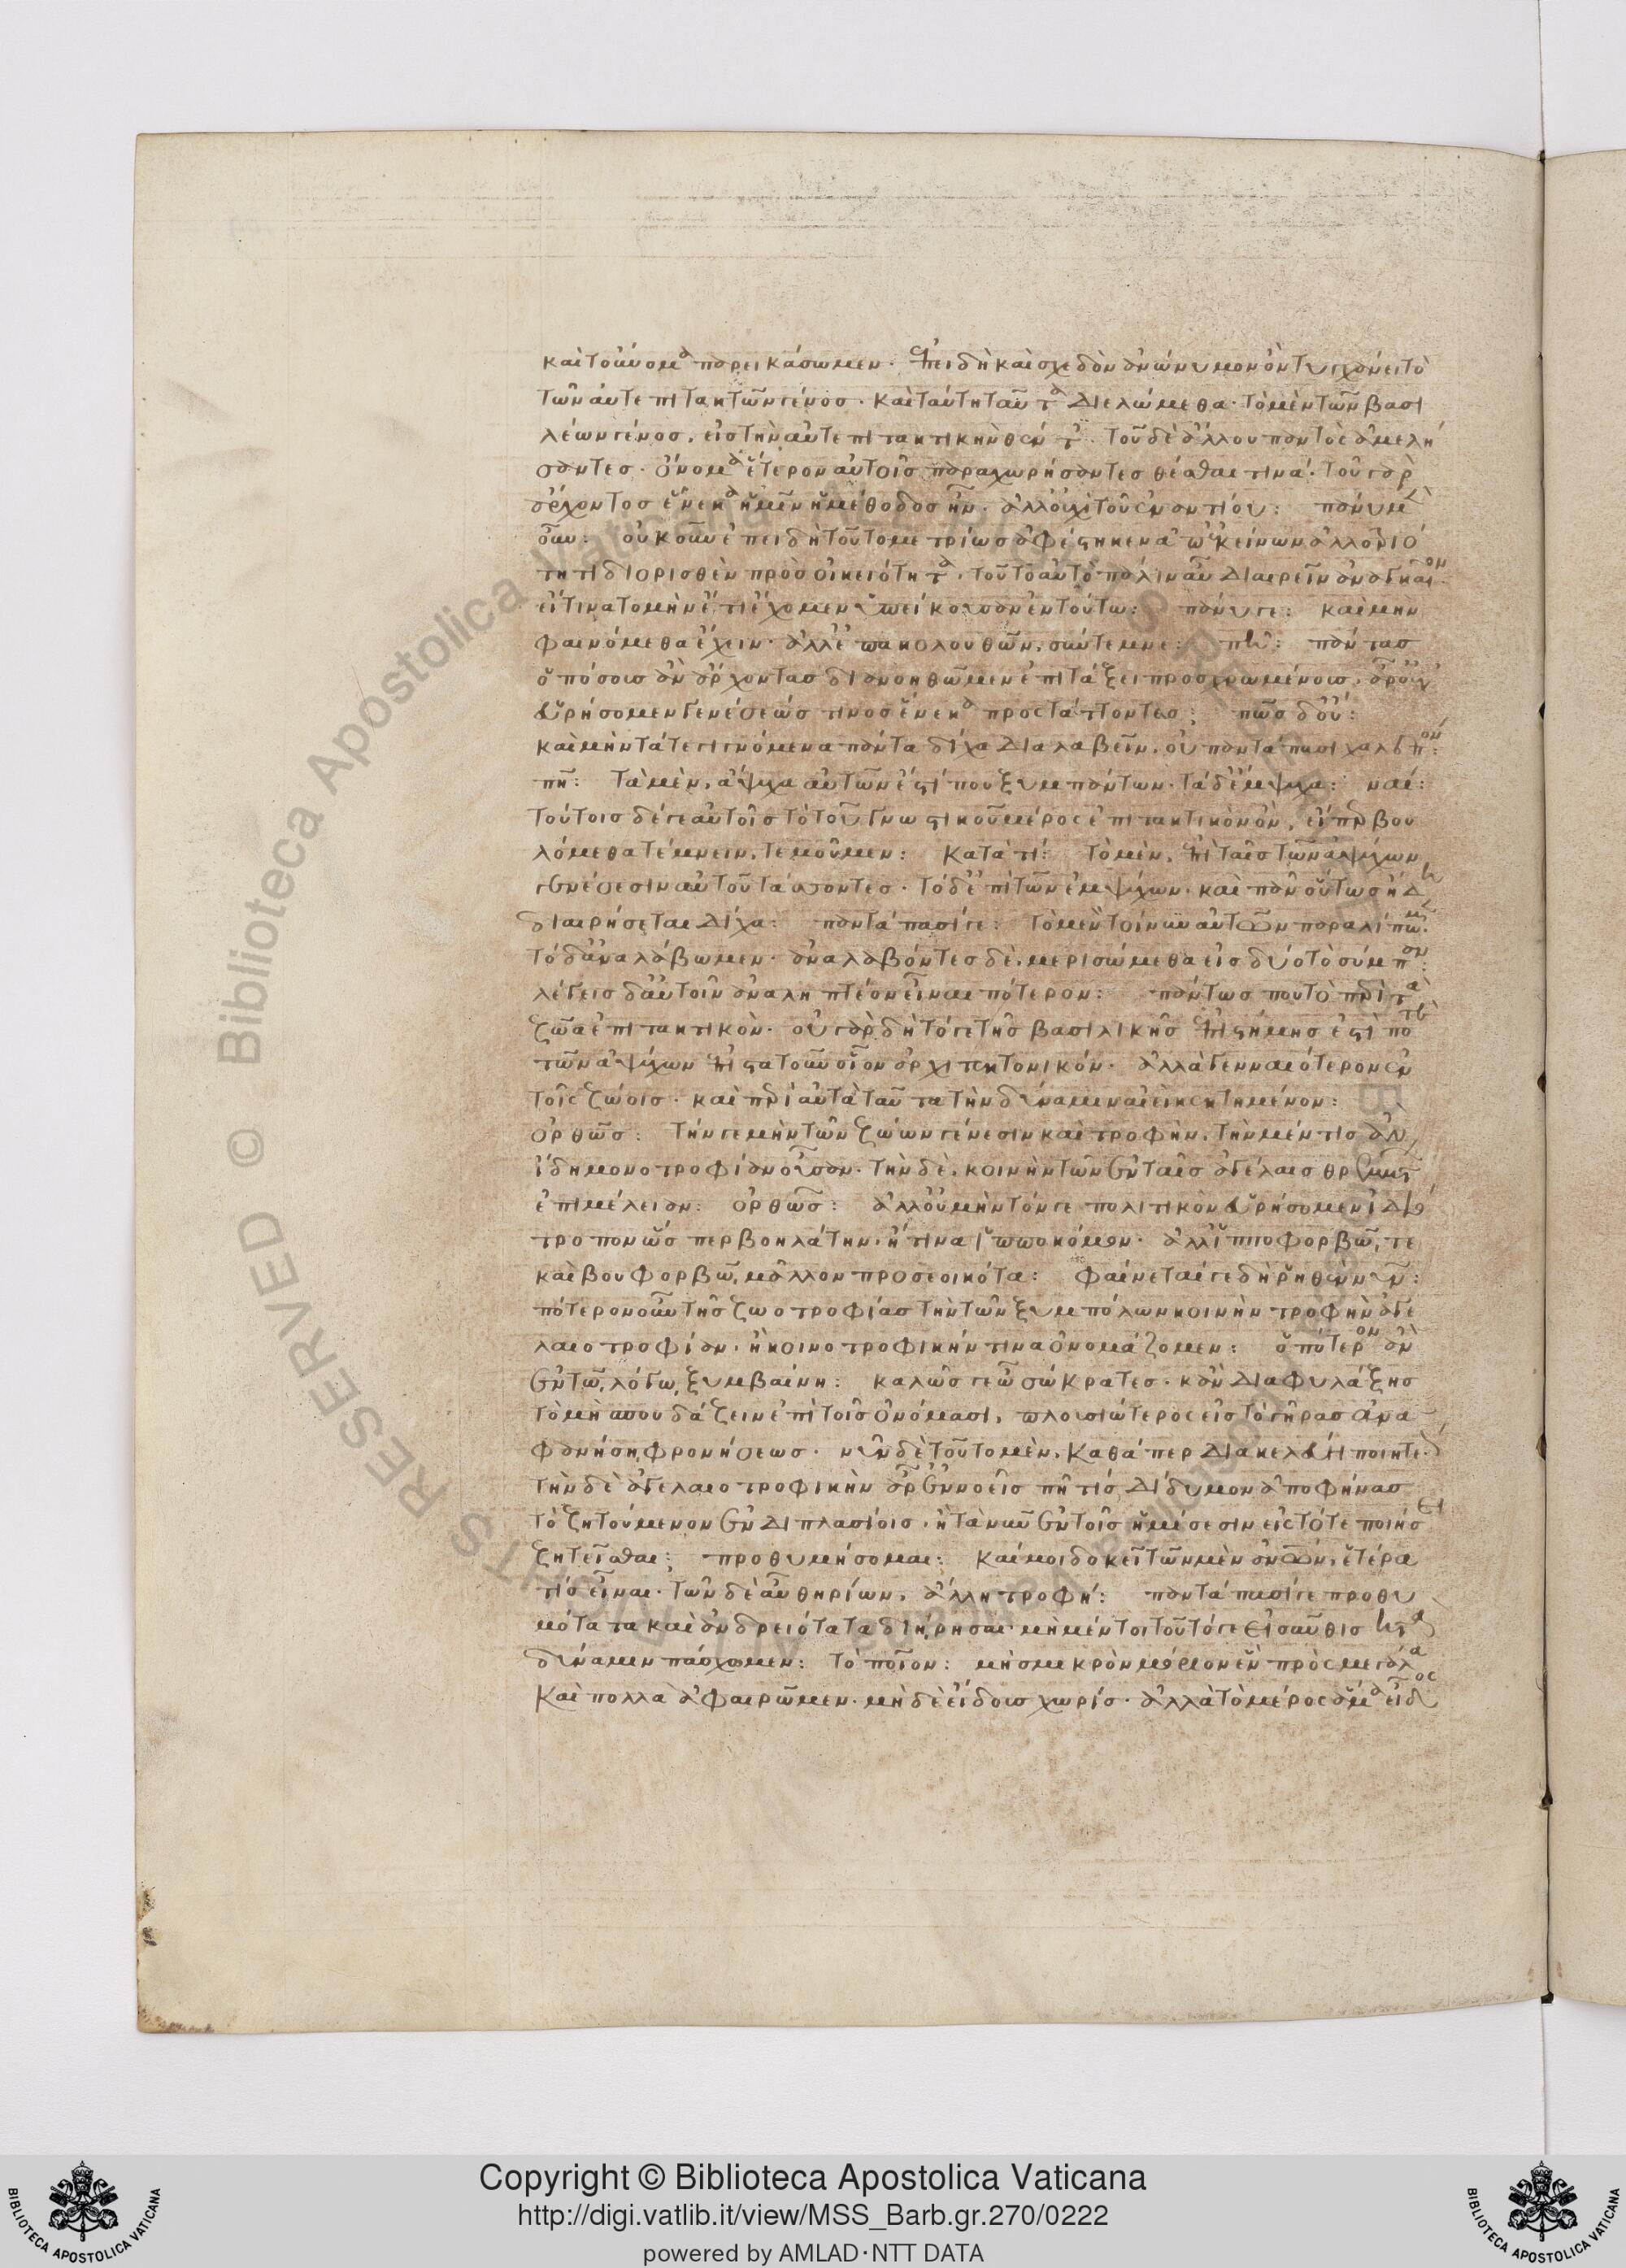 καὶ τοὔνομα παρεικάσωμεν· ἐπειδὴ καὶ σχεδὸν ἀνώνυμον ὂν τυγχάνει τὸ
τῶν αὐτεπιτακτῶν γένος· καὶ ταύτη ταῦτα διελώμεθα· τὸ μὲν τῶν βασι
λέων γένος, εἰς τὴν αὐτεπιτακτικὴν θέντες· τοῦ δὲ ἄλλου παντὸς ἀμελή
σαντες· ὄνομα ἕτερον αὐτοῖς παραχωρήσαντες θέσθαι τινά· τοῦ γὰρ
ἄρχοντος ἕνεκα ἡμῖν ἡ μέθοδος ἦν· ἀλλ' οὐχὶ τοῦ ἐναντίου: πάνυ μὲν
οὖν: οὐκοῦν ἐπειδὴ τοῦτο μετρίως ἀφέστηκεν ἀπ' ἐκείνων ἀλλοτριό
τητι διορισθὲν πρὸς οἰκειότητα, τοῦτο αὐτὸ πάλιν αὖ διαιρεῖν ἀναγκαῖον·
εἴ τινα τομὴν ἔτι ἔχομεν ὑπείκουσαν ἐν τούτω: πάνυ γε: καὶ μὴν
φαινόμεθα ἔχειν· ἀλλ' ἐπακολουθῶν, σύντεμνε: πῆ: πάντας
ὁπόσους ἂν ἄρχοντας διανοηθῶμεν ἐπιτάξει προσχρωμένους, ἆρ' οὐχ
εὑρήσομεν γενέσεώς τινος ἕνεκα προστάττοντας; πῶς δ' οὔ:
καὶ μὴν τά τε γιγνόμενα πάντα δίχα διαλαβεῖν, οὐ παντάπασι χαλεπόν:
πῆ: τὰ μὲν, ἄψυχα αὐτῶν ἐστί που ξυμπάντων· τὰ δ' ἔμψυχα: ναί:
τούτοις δέ γε αὐτοῖς τὸ τοῦ γνωστικοῦ μέρος ἐπιτακτικὸν ὂν, εἴπερ βου
λόμεθα τέμνειν, τεμοῦμεν: κατὰ τί: τὸ μὲν, ἐπὶ ταῖς τῶν ἀψύχων
γενέσεσιν αὐτοῦ τάσσοντες· τὸ δ' ἐπὶ τῶν ἐμψύχων· καὶ πᾶν οὕτως ἤδη
διαιρήσεται δίχα: παντάπασί γε: τὸ μὲν τοίνυν αὐτῶν παραλίπωμεν·
τὸ δ' ἀναλάβωμεν· ἀναλαβόντες δὲ, μερισώμεθα εἰς δύο τὸ σύμπαν:
λέγεις δ' αὐτοῖν ἀναληπτέον εἶναι πότερον: πάντως που τὸ περὶ τὰ
ζῶα ἐπιτακτικὸν· οὐ γὰρ δὴ τό γε τῆς βασιλικῆς ἐπιστήμης ἐστί ποτε
τῶν ἀψύχων ἐπιστατοῦν οἷον ἀρχιτεκτονικόν· ἀλλὰ γενναιότερον ἐν
τοῖς ζώοις· καὶ περὶ αὐτὰ ταῦτα τὴν δύναμιν ἀεὶ κεκτημένον:
ὀρθῶς: τήν γε μὴν τῶν ζώων γένεσιν καὶ τροφὴν, τὴν μέν τις ἂν
ἴδη μονοτροφίαν οὖσαν· τὴν δὲ, κοινὴν τῶν ἐν ταῖς ἀγέλαις θρεμμάτων
ἐπιμέλειαν: ὀρθῶς: ἀλλ' οὐ μὴν τόν γε πολιτικὸν εὑρήσομεν ἰδιό
τροπον ὥσπερ βοηλάτην, ἤ τινα ἱπποκόμον· ἀλλ' ἱπποφορβῶ, τε
καὶ βουφορβῶ, μᾶλλον προσεοικότα: φαίνεταί γε δὴ ῥηθὲν νῦν:
πότερον οὖν τῆς ζωοτροφίας τὴν τῶν ξυμπόλων κοινὴν τροφὴν ἀγε
λαιοτροφίαν, ἢ κοινοτροφικήν τινα ὀνομάζομεν: ὁπότερον ἂν
ἐν τῶ, λόγω, ξυμβαίνη: καλῶς γε ὦ σώκρατες· κἂν διαφυλάξης
τὸ μὴ σπουδάζειν ἐπὶ τοῖς ὀνόμασι, πλουσιώτερος εἰς τὸ γῆρας ἀνα
φανήση φρονήσεως· νῦν δὲ τοῦτο μὲν, καθάπερ διακελεύη ποιητέον·
τὴν δὲ ἀγελαιοτροφικὴν ἆρ' ἐννοεῖς πῆ τίς δίδυμον ἀποφήνας
τὸ ζητούμενον ἐν διπλασίοις, ἢ τὰ νῦν ἐν τοῖς ἡμίσεσιν εἰς τότε ποιήσει
ζητεῖσθαι: προθυμήσομαι: καί μοι δοκεῖ τῶν μὲν ἀνθρώπων, ἑτέρα
τίς εἶναι· τῶν δὲ αὖ θηρίων, ἄλλη τροφή: παντάπασί γε προθυ
μότατα καὶ ἀνδρειότατα διήρησαι· μὴ μέντοι τοῦτό γε εἰσαῦθις κατὰ
δύναμιν πάσχωμεν: τὸ ποῖον: μὴ σμικρὸν μόριον ἓν πρὸς μεγάλα
καὶ πολλὰ ἀφαιρῶμεν· μὴ δὲ εἴδους χωρίς· ἀλλὰ τὸ μέρος ἅμα εἶδος
Copyright © Biblioteca Apostolica Vaticana
http://digi.vatlib.it/view/MSS_Barb.gr.270/0222
powered by AMLAD·NTT DATA